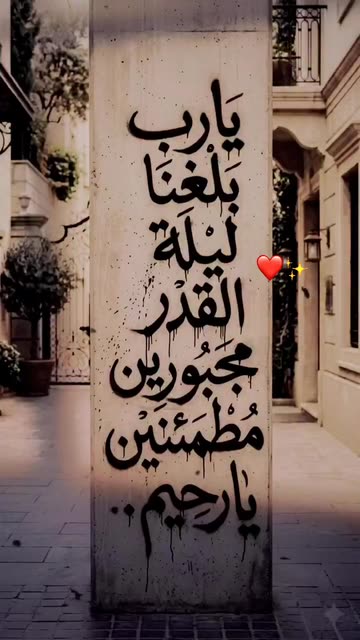 يَارب
بَلْغنَا
لَيْلَة
القَدْر
مَجبُورين
مُطْمَئنَيْن
يَارحِيم..